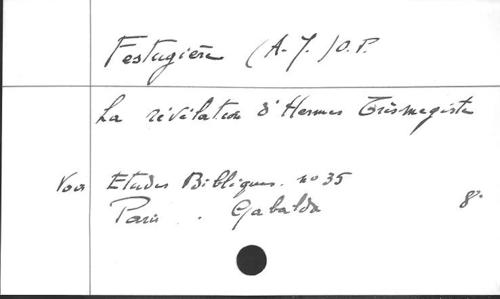 Festugière (A.-J.) O.P.
La révélation d'Hermes Trismegiste
Voir Etudes Bibliques. no 35
Paris . Gabalda 8°